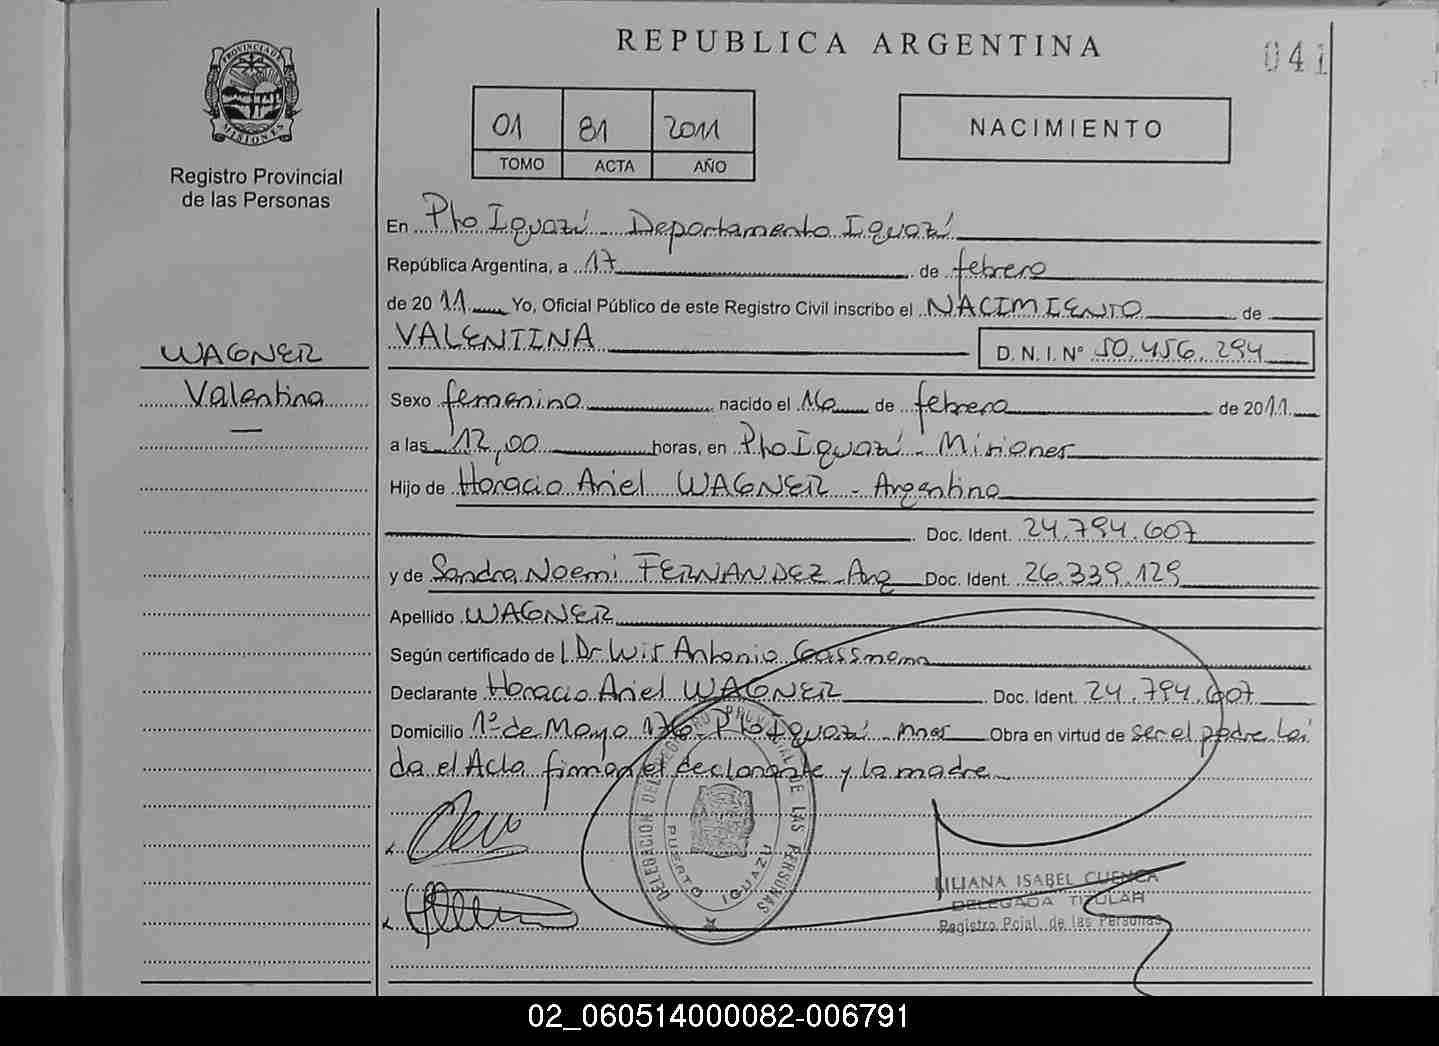 REPUBLICA ARGENTINA
041
PROVINCIA DE MISIONES
Registro Provincial
de las Personas
01 81 2011
TOMO ACTA AÑO
NACIMIENTO
En Pto Iguazú - Departamento Iguazú
República Argentina, a 17 de febrero
de 2011 Yo, Oficial Público de este Registro Civil inscribo el NACIMIENTO de
VALENTINA D. N. I. Nº 50.456.294
WAGNER
Valentina
Sexo femenino nacido el 16 de febrero de 2011
a las 12,00 horas, en Pto Iguazú - Misiones
Hijo de Horacio Ariel WAGNER - Argentino
Doc. Ident. 24.794.607
y de Sandra Noemi FERNANDEZ - Arg Doc. Ident. 26.339.129
Apellido WAGNER
Según certificado de Dr Luis Antonio
Declarante Horacio Ariel WAGNER Doc. Ident. 24.794.607
Domicilio 1º de Mayo 176 - Pto Iguazú - Mnes Obra en virtud de ser el padre Leí
da el Acta firman el declarante y la madre
DELEGACION DEL REGISTRO PROVINCIAL DE LAS PERSONAS
PUERTO IGUAZU
LILIANA ISABEL CUENCA
DELEGADA TITULAR
Registro Pcial. de las Personas
02_060514000082-006791